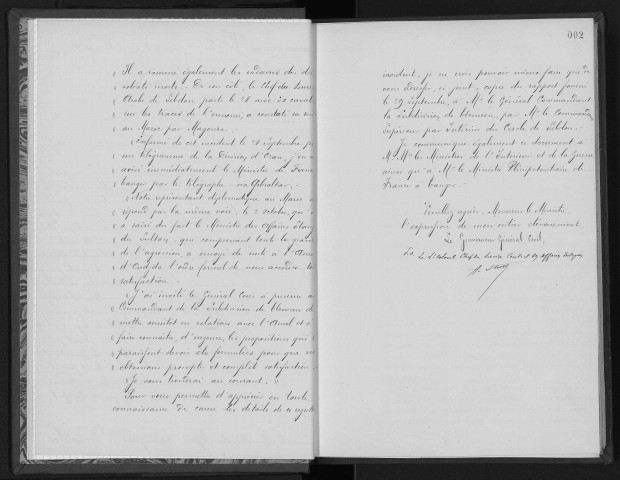 Il a ramené également les cadavres des
soldats morts. De son côté, le Chef du
Cercle de Sebdou parti le 28 avec 20
sur les traces de l'ennemi, a constaté
au Maroc par Magoura.
« Informé de cet incident le 28 Septembre par
un télégramme de la Division d'Oran, j'en
avisé immédiatement le Ministre de France
tanger par le télégraphe viâ Gibraltar.
« Notre représentant diplomatique au Maroc
répond par la même voie, le 2 octobre, qu'il
a saisi du fait le Ministre des Affaires Etrang
du Sultan, qui comprenant toute la gravité
de l'agression a envoyé de suite à l'Amel
d'Oudjda l'ordre formel de nous accorder
satisfaction.
« J'ai invité le Général Céréz à prescrire au
Commandant de la Subdivision de tlemcen de
mettre aussitôt en relations avec l'Amel et à
faire connaître, d'urgence, les propositions qui
paraissent devoir être formulées pour que
obtenions prompte et complète satisfaction.
« Je vous tiendrai au courant. »
Pour vous permettre d'apprécier en toute
connaissance de cause les détails de ce
002
incident, je ne crois pouvoir mieux faire que de
vous adresser, ci-joint, copie du rapport fourni
le 29 Septembre, à Mr le Général Commandant
la Subdivision de tlemcen, par Mr le Commandant
Supérieur par Intérim du Cercle de Sebdou.
Je communique également ce document à
M.Mrs les Ministres de l'Intérieur et de la Guerre
ainsi qu'à Mr le Ministre Plénipotentiaire de
France à tanger.
Veuillez agréer, Monsieur le Ministre,
l'expression de mon entier dévouement.
Le Gouverneur Général Civil,
Le Lt Colonel Chef du Service Central des Affaires Indigènes